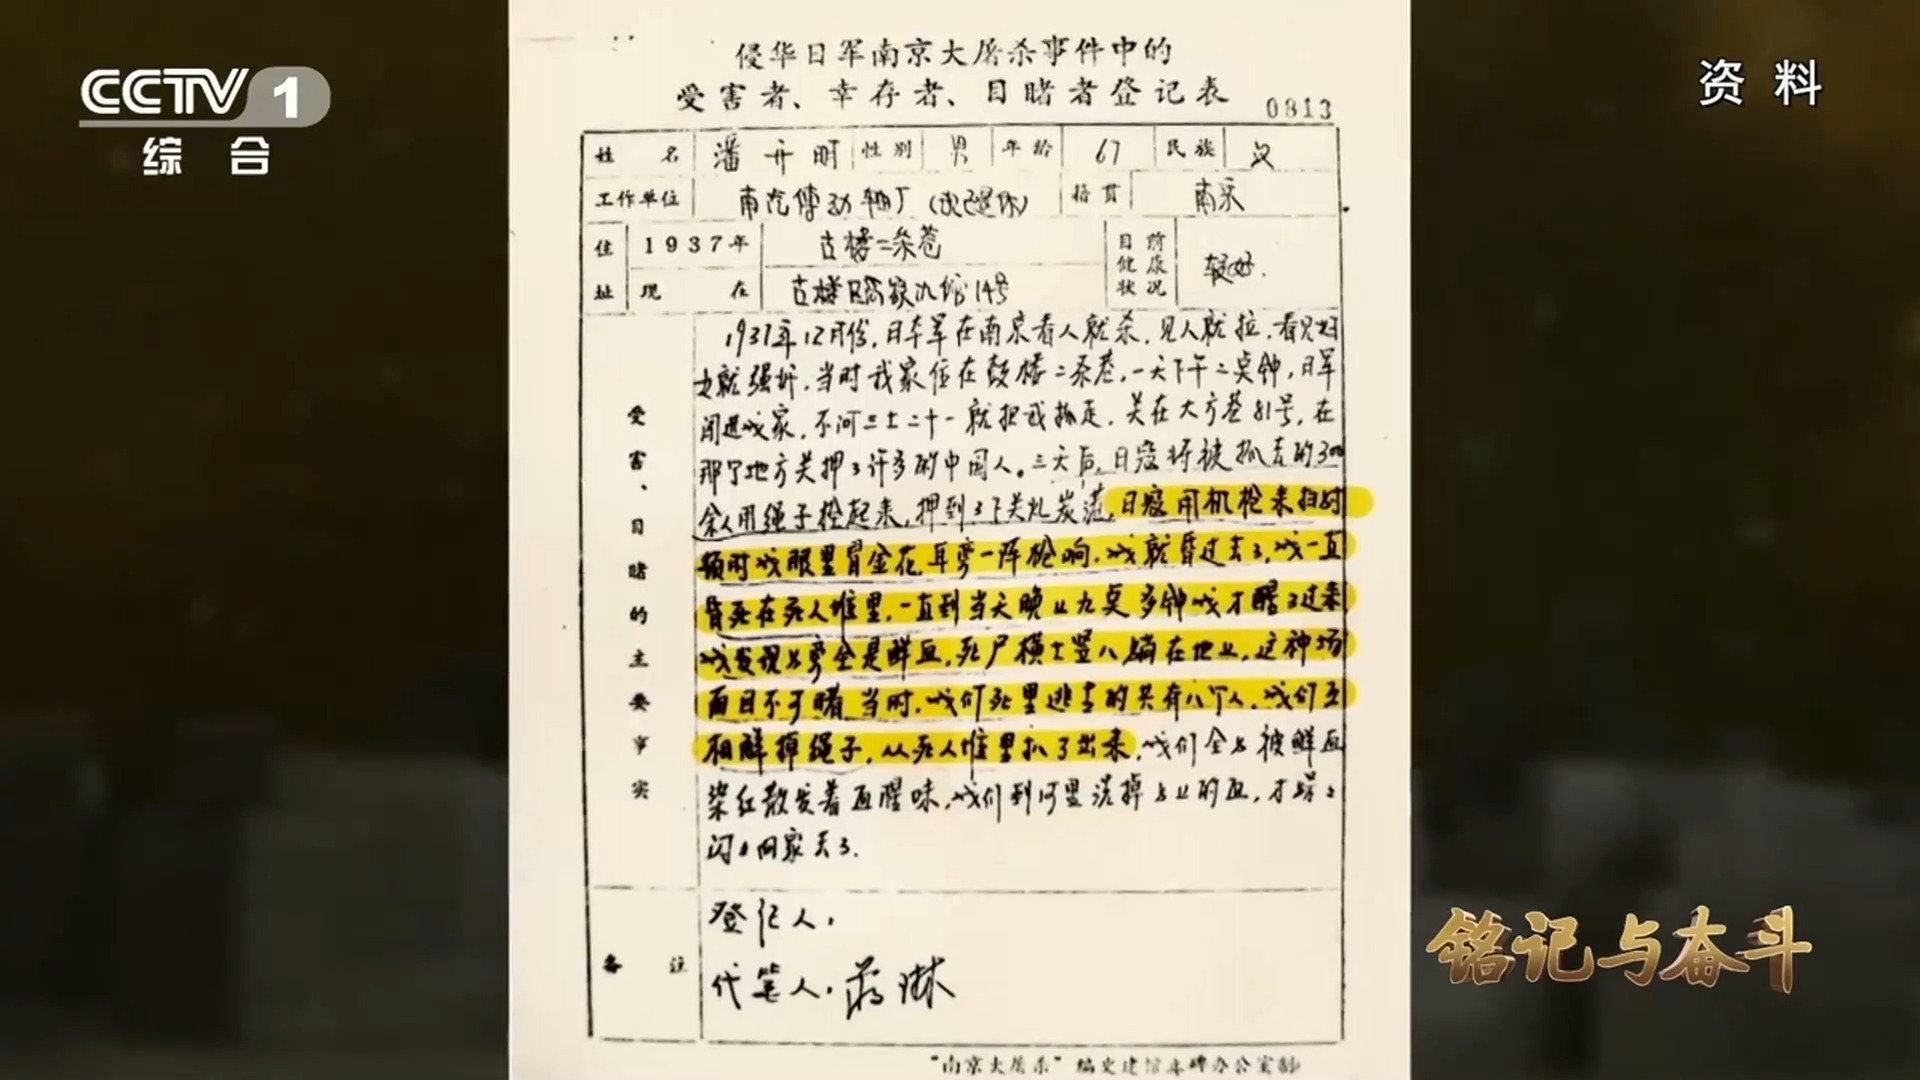 CCTV 1
综合
资料
侵华日军南京大屠杀事件中的
受害者、幸存者、目睹者登记表 0813
姓名 潘开明 性别 男 年龄 67 民族 汉
工作单位 南汽傅动轴厂(我已退休) 籍贯 南京
住址 1937年 古楼二条巷 目前健康状况 较好.
现在 古楼区高家九馆14号
受害、目睹的主要事实
1937年12月份,日本军在南京看人就杀,见人就拉,看见妇
女就强奸,当时我家住在鼓楼二条巷,一天下午二点钟,日军
闯进我家,不问三七二十一就把我抓走,关在大方巷81号,在
那个地方关押了许多的中国人。三天后,日寇将被抓去的300
余人用绳子拴起来,押到了下关煤炭港,日寇用机枪来扫射
顿时我眼里冒金花,耳旁一阵枪响,我就昏过去了,我一直
昏死在死人堆里,一直到当天晚上九点多钟我才醒了过来
我发现身旁全是鲜血,死尸横七竖八躺在地上,这种场
面目不可睹当时,我们死里逃生的共有八个人,我们互
相解掉绳子,从死人堆里扒了出来,我们全身被鲜血
染红散发着血腥味,我们到河里洗掉身上的血,才躲躲
闪闪回家去了.
备注 登记人:
代笔人:蒋琳
"南京大屠杀"编史建馆立碑办公室制
铭记与奋斗